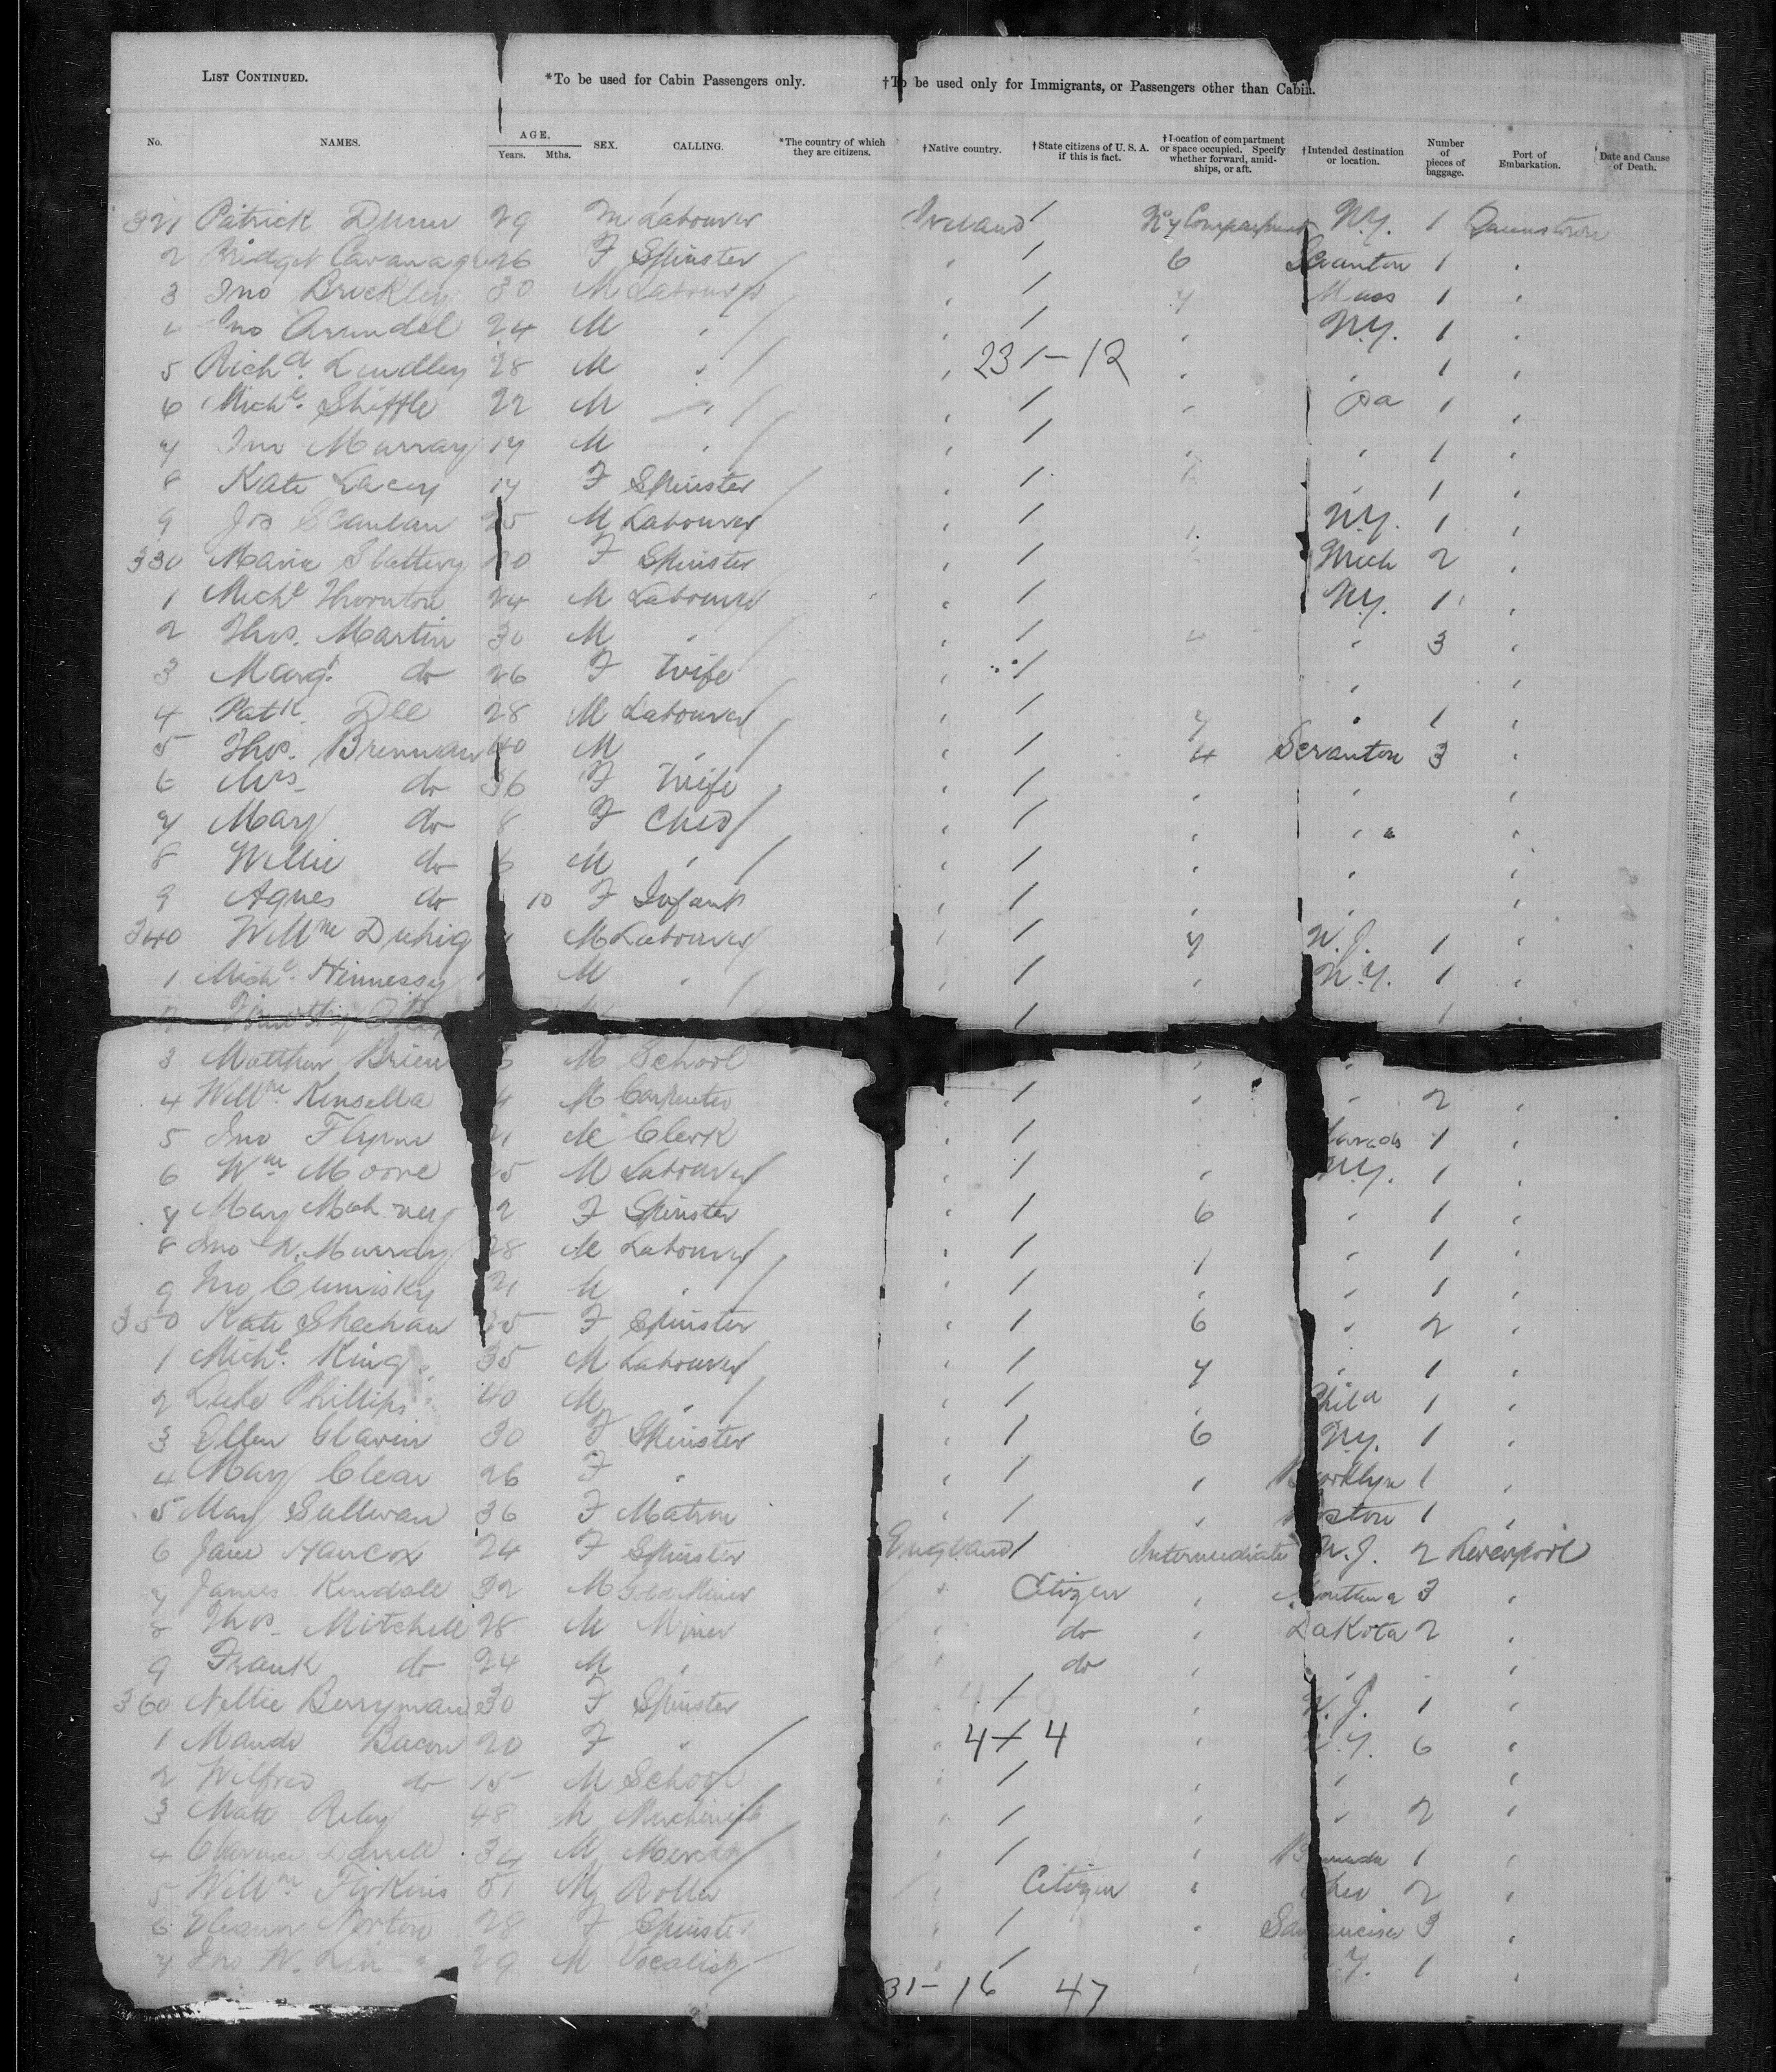 LIST CONTINUED. *To be used for Cabin Passengers only. †To be used only for Immigrants, or Passengers other than Cabin.
No. NAMES. AGE. Years. Mths. SEX. CALLING. *The country of which they are citizens. †Native country. †State citizens of U. S. A. if this is fact. †Location of compartment or space occupied. Specify whether forward, amidships, or aft. †Intended destination or location. Number of pieces of baggage. Port of Embarkation. Date and Cause of Death.
321 Patrick Dunn 29 M Labourer Ireland / Compartment N.Y. 1 Queenstown
2 Bridget Cavanagh 26 F Spinster " / 6 Scranton 1 "
3 Jno Brickley 30 M Labourer " / 7 Mass 1 "
4 Jno Arundel 24 M " " / " N.Y. 1 "
5 Richd. Lindley 28 M " " 23 / - 12 " " 1 "
6 Michl. Shiffle 22 M " " / " Pa 1 "
7 Jno Murray 17 M " " / " " 1 "
8 Kate Lacey 17 F Spinster " / " 1 "
9 Jos Scanlan 25 M Labourer " / N.Y. 1 "
330 Maria Slattery 20 F Spinster " / Mich 2 "
1 Michl Thornton 24 M Labourer " / N.Y. 1 "
2 Thos. Martin 30 M " " / " 3 "
3 Margt. do 26 F Wife " / " "
4 Patk. Dee 28 M Labourer " / 7 " 1 "
5 Thos. Brennan 40 M " " / 4 Scranton 3 "
6 Mrs do 36 F Wife " / " " "
7 Mary do 8 F Child " / " " "
8 Willie do 6 M " " / " " "
9 Agnes do 10 F Infant " / " " "
340 Willm Duhig M Labourer " / 7 N.J. 1 "
1 Michl. Hennessy M " " / " N.Y. 1 "
2 Timothy / 1 "
3 Matthew Brien M School " "
4 Willm Kinsella 4 M Carpenter " / " " 2 "
5 Jno Flynn 21 M Clerk " / 1 "
6 Wm Moore 25 M Labourer " / " N.Y. 1 "
7 Mary 2 F Spinster " / 6 " 1 "
8 Jno W. Murray 28 M Labourer " / 7 " 1 "
9 Jno Cumisky 21 M " " / " " 1 "
350 Kate Sheehan 25 F Spinster " / 6 " 2 "
1 Michl. King 35 M Labourer " / 7 " 1 "
2 Luke Phillips 40 M " " / " Phila 1 "
3 Ellen Clavin 30 F Spinster " / 6 N.Y. 1 "
4 Mary Clear 26 F " " / " Brooklyn 1 "
5 Mary Sullivan 36 F Matron " / " Boston 1 "
6 Jane Hancox 24 F Spinster England / Intermediate N.J. 2 Liverpool
7 James Kendall 32 M Gold Miner " Citizen " Montana 3 "
8 Thos. Mitchell 28 M Miner " do " Dakota 2 "
9 Frank do 24 M " " do " " "
360 Nellie Berryman 30 F Spinster " / " N.J. 1 "
1 Maude Bacon 20 F " " 4 / 4 " N.Y. 6 "
2 Wilfred do 15 M School " / " " "
3 Matt Riley 48 M Machinist " / " " 2 "
4 Clarence Darrell 34 M " / " Bermuda 1 "
5 Willm. Firkins 51 M Roller " Citizen " 2 "
6 Eleanor Norton 28 F Spinster " / " San Francisco 3 "
7 Jno W. 29 M Vocalist " / " N.Y. 1 "
31 - 16 47